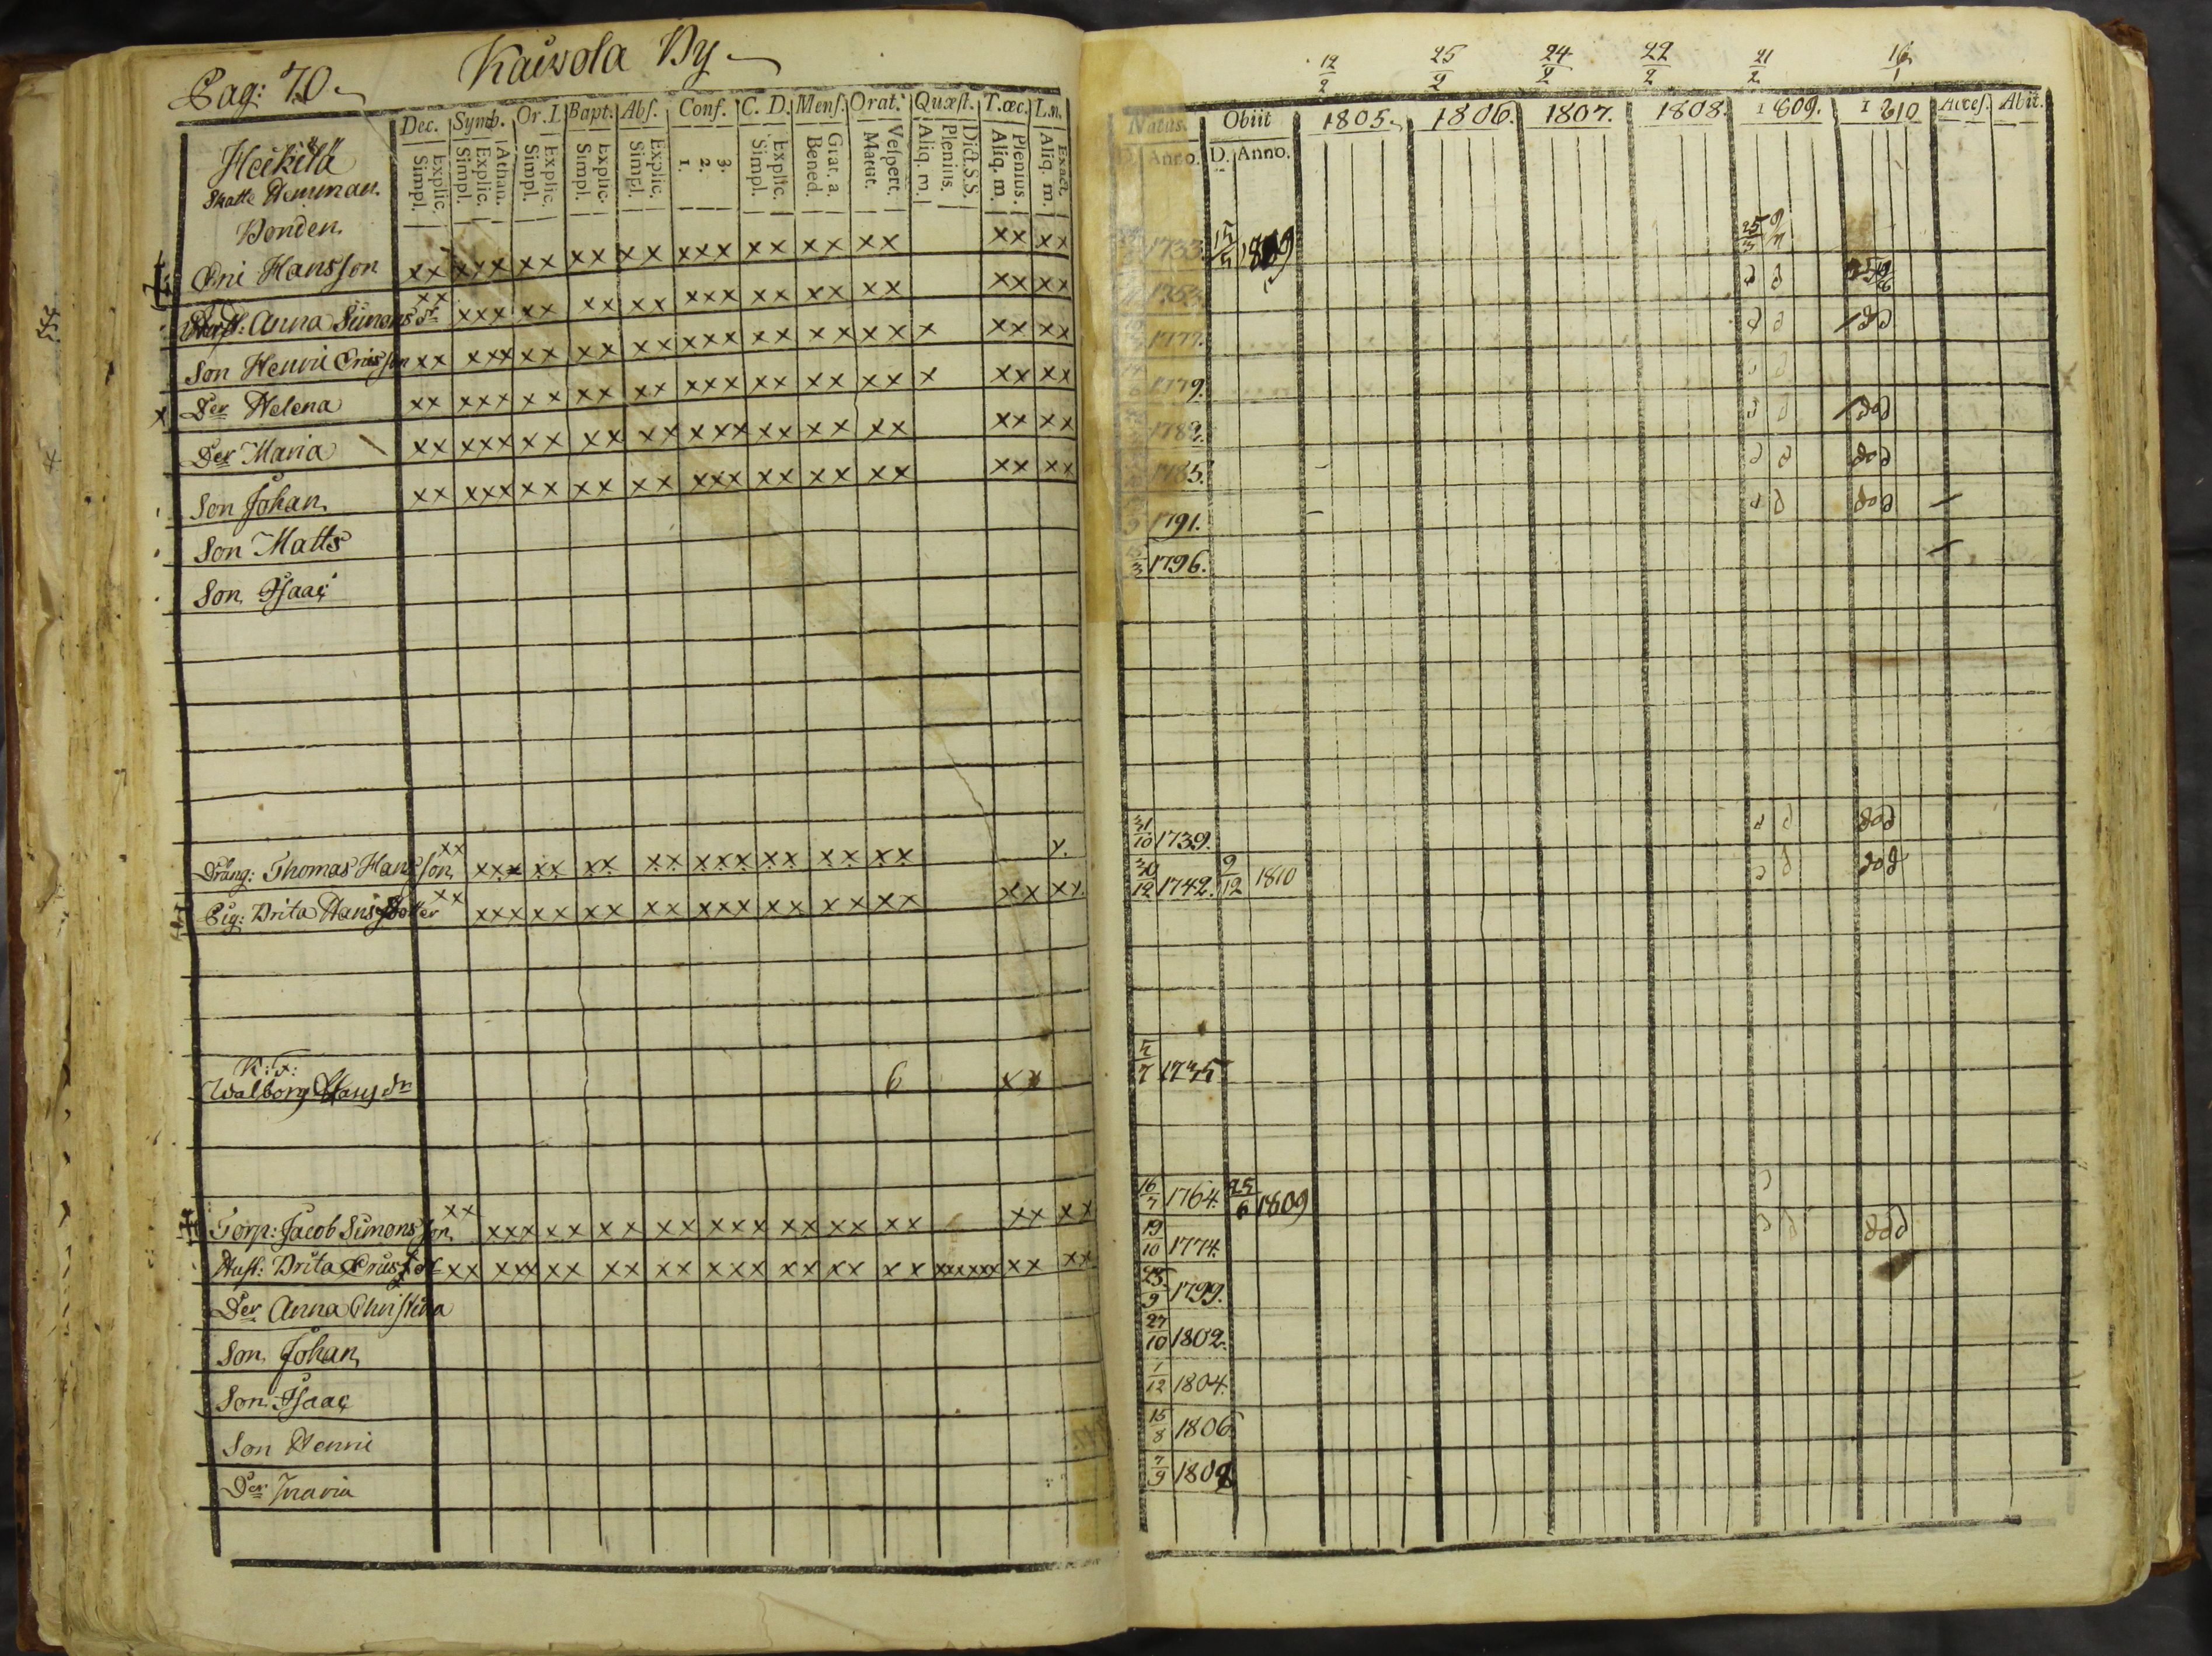 Pag: 70. Kaiwola By
Dec. Symb. Or. I. Bapt. Abſ. Conf. C. D. Menſ. Orat. Quæſt. T. œc. L. n.
Explic. Simpl. Athan. Explic. Simpl. Explic. Simpl. Explic. Simpl. Explic. Simpl. 3. 2. 1. Explic. Simpl. Grat. a. Bened. Veſpert. Matut. Dict. S.S. Plenius. Aliq. m. Plenius. Aliq. m. Exact. Aliq. m.
Heikilä
Skatte Hemman.
Bonden
Eric Hansſon xx xxx xx xx xx xxx xx xx xx xx xx
Huſt: Anna Simons dr xx xxx xx xx xx xxx xx xx xx xx xx
Son Henric Ericsſon xx xxx xx xx xx xxx xx xx xx x xx xx
Der Helena xx xxx xx xx xx xxx xx xx xx x xx xx
Der Maria xx xxx xx xx xx xxx xx xx xx xx xx
Son Johan xx xxx xx xx xx xxx xx xx xx xx xx
Son Matts
Son Iſaac
Dräng: Thomas Hansſon xx xxx xx xx xx xxx xx xx xx x
Pig: Brita Hans Dotter xx xxx xx xx xx xxx xx xx xx xx xx
K: F:
Walborg Hans dr 6 xx
Torp: Jacob Simonsſon xx xxx xx xx xx xxx xx xx xx xx xx
Huſt: Brita Erics dr xx xxx xx xx xx xxx xx xx xx xxxxxx xx xx
Der Anna Chriſtina
Son Johan
Son Iſaac
Son Henric
Der Maria
12/2 25/2 24/2 22/2 21/2 16/1
Natus. Obiit 1805. 1806. 1807. 1808. 1809. 1810 Acceſ. Abit.
D. Anno. D. Anno.
1733. 1809 25/3
1777.
1779.
1782.
1785.
1791.
1796.
31/10 1739.
30/12 1742. 9/12 1810
5/7 1735
16/7 1764. 25/6 1809
19/10 1774.
23/9 1799.
27/10 1802.
1/12 1804.
15/8 1806
7/9 1808